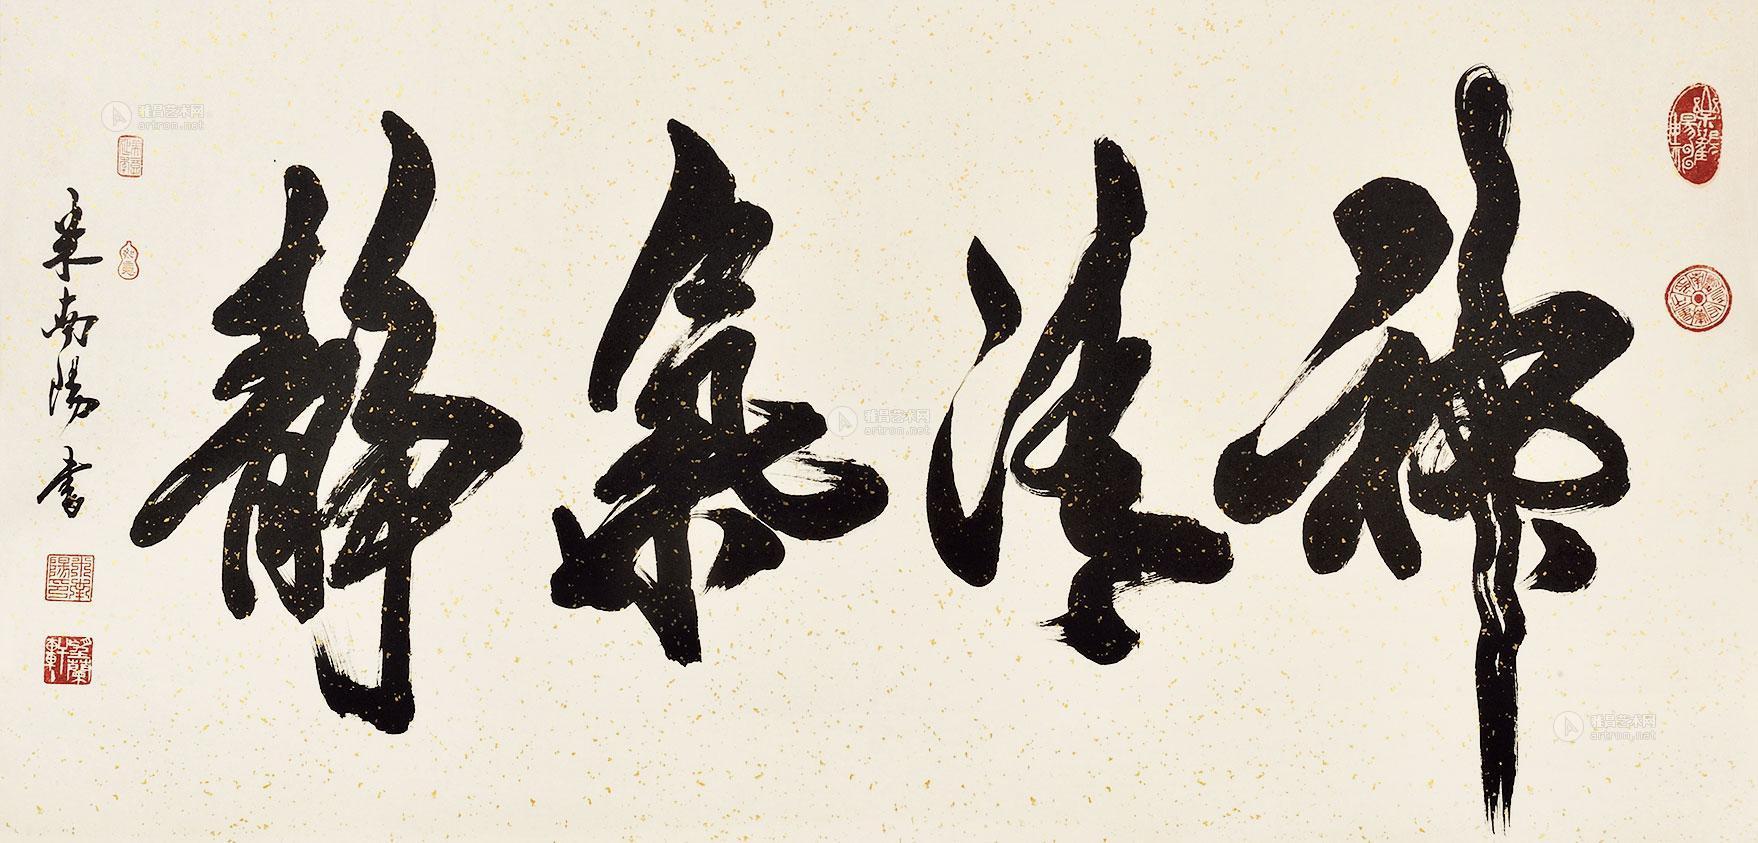 神清氣靜
米南陽書
雅昌艺术网
artron.net
雅昌艺术网
artron.net
雅昌艺术网
artron.net